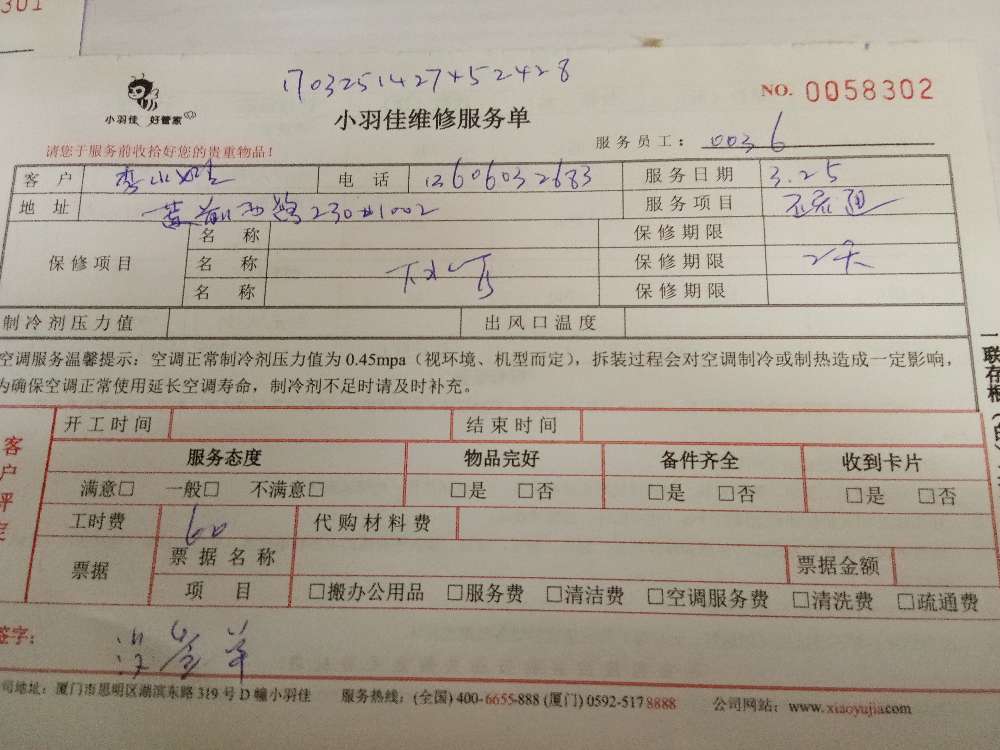 301
1703251427452428
NO. 0058302
小羽佳 好管家
小羽佳维修服务单
请您于服务前收拾好您的贵重物品！
服务员工： 0036
客 户 电 话 13606032683 服务日期 3.25
地 址 230#1002 服务项目
保修项目 名 称 保修期限
名 称 下水 保修期限 2天
名 称 保修期限
制冷剂压力值 出风口温度
空调服务温馨提示：空调正常制冷剂压力值为 0.45mpa（视环境、机型而定），拆装过程会对空调制冷或制热造成一定影响，
为确保空调正常使用延长空调寿命，制冷剂不足时请及时补充。
联存根
客户评定
开工时间 结束时间
服务态度 物品完好 备件齐全 收到卡片
满意□ 一般□ 不满意□ □是 □否 □是 □否 □是 □否
工时费 60 代购材料费
票据 票据名称 票据金额
项 目 □搬办公用品 □服务费 □清洁费 □空调服务费 □清洗费 □疏通费
签字：
司地址：厦门市思明区湖滨东路 319 号 D 幢小羽佳 服务热线：(全国) 400-6655-888 (厦门) 0592-5178888 公司网站：www.xiaoyujia.com